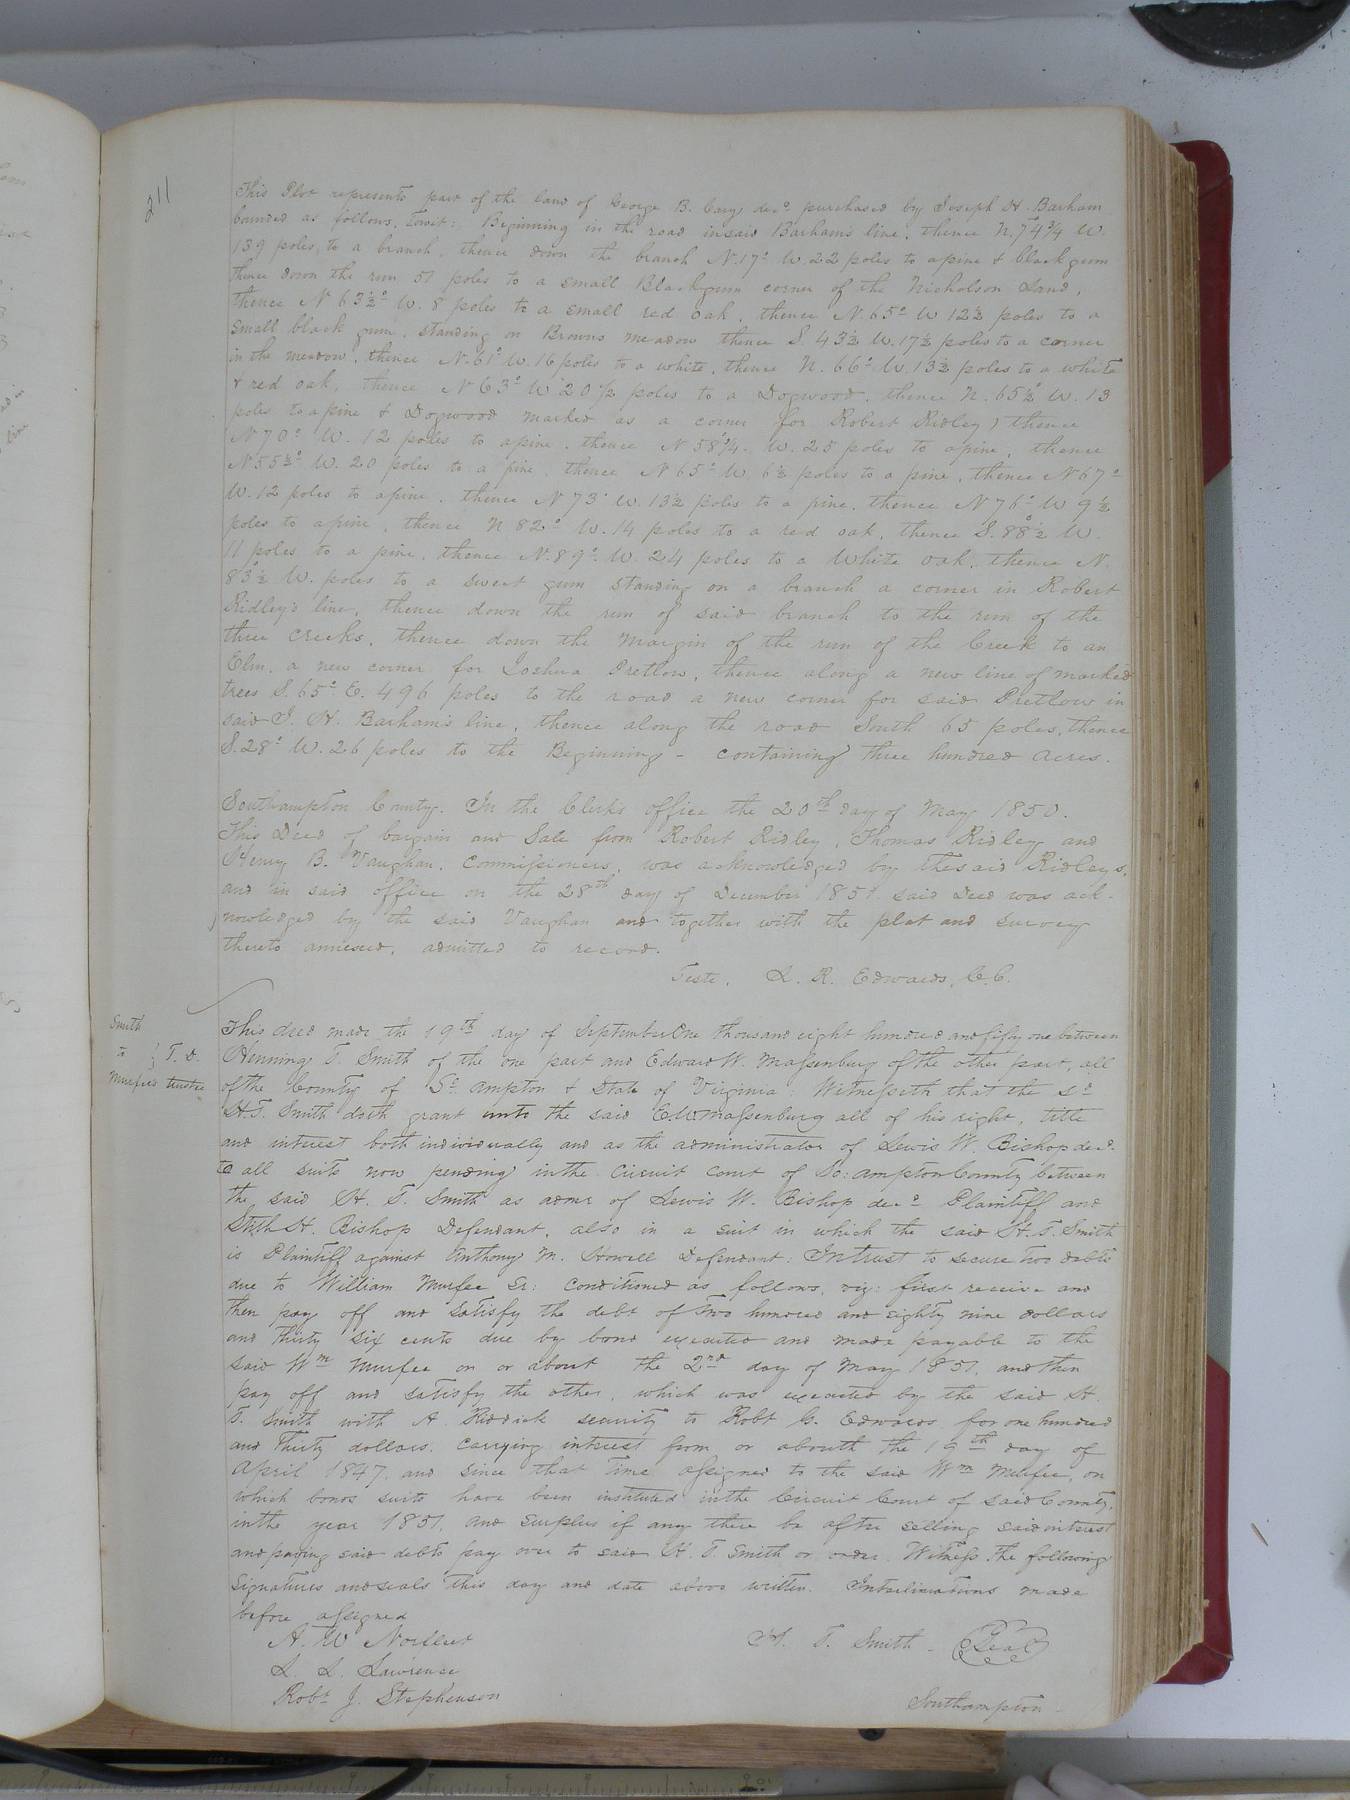 211
This Plot represents part of the land of George B. Cary, decd. purchased by Joseph H. Barham
bounded as follows, Towit: Beginning in the road in said Barham's line, thence N. 74 3/4 W.
139 poles, to a branch, thence down the branch N. 17° W. 22 poles to a pine & black gum
thence down the run 51 poles to a small Blackgum corner of the Nicholson Land,
thence N 63½° W. 8 poles to a small red oak, thence N. 65° W 12½ poles to a
small black gum, standing on Browns meadow thence S. 43½ W. 17½ poles to a corner
in the meadow, thence N. 61° W. 16 poles to a white, thence N. 66° W. 13½ poles to a white
& red oak, thence N 63° W 20 1/2 poles to a Dogwood, thence N. 65½° W. 13
poles to a pine & Dogwood marked as a corner for Robert Ridley) thence
N 70° W. 12 poles to a pine, thence N 58°1/4. W. 25 poles to a pine, thence
N 55½° W. 20 poles to a pine, thence N 65° W. 6½ poles to a pine, thence N 67°
W. 12 poles to a pine, thence N 73° W. 13½ poles to a pine, thence N 76° W 9½
poles to a pine, thence N 82° W. 14 poles to a red oak, thence S. 88½° W.
11 poles to a pine, thence N. 89° W. 24 poles to a White oak, thence N.
83½° W. poles to a sweet gum standing on a branch a corner in Robert
Ridley's line, thence down the run of said branch to the run of the
three creeks, thence down the margin of the run of the Creek to an
Elm, a new corner for Joshua Pretlow, thence along a new line of marked
trees S. 65° E. 496 poles to the road a new corner for said Pretlow in
said J. H. Barham's line, thence along the road South 65 poles, thence
S. 28° W. 26 poles to the Beginning - containing three hundred acres.
Southampton County. In the Clerk's office the 20th day of May 1850.
This Deed of bargain and Sale from Robert Ridley, Thomas Ridley and
Henry B. Vaughan, Commissioners, was acknowledged by the said Ridleys,
and in said office on the 28th day of December 1851 said Deed was ack-
nowledged by the said Vaughan and together with the plat and survey
thereto annexed, admitted to record.
Teste, L. R. Edwards, C.C.
Smith
to } T. D.
Murfee's trustee
This deed made the 19th day of September One thousand eight hundred and fifty one between
Henning T. Smith of the one part and Edward W. Massenburg of the other part, all
of the County of So. ampton & State of Virginia: Witnesseth that the sd.
H. T. Smith doth grant unto the said E. W. Massenburg all of his right, title
and interest both individually and as the administrator of Lewis W. Bishop decd.
to all suits now pending in the Circuit Court of So: ampton County between
the said H. T. Smith as admr of Lewis W. Bishop decd. Plaintiff and
Stith H. Bishop Defendant, also in a suit in which the said H. T. Smith
is Plaintiff against Anthony M. Howell Defendant: In trust to secure two debts
due to William Murfee Sr: conditioned as follows, viz: first receive and
then pay off and satisfy the debt of two hundred and eighty nine dollars
and thirty six cents due by bond executed and made payable to the
said Wm Murfee on or about the 2nd day of May 1851, and then
pay off and satisfy the other, which was executed by the said H.
T. Smith with A. Riddick security to Robt G. Edwards for one hundred
and Thirty dollars, carrying interest from or abouth the 19th day of
April 1847, and since that Time assigned to the said Wm Murfee, on
which bonds suits have been instituted in the Circuit Court of said County,
in the year 1851, and surplus if any there be after selling said interest
and paying said debts pay over to said H. T. Smith or order. Witness the following
Signatures and seals this day and date above written. Interlineations made
before assigned
A. W Norfleet
L. L. Lawrence
Robt J. Stephenson
H. T. Smith - Seal
Southampton -